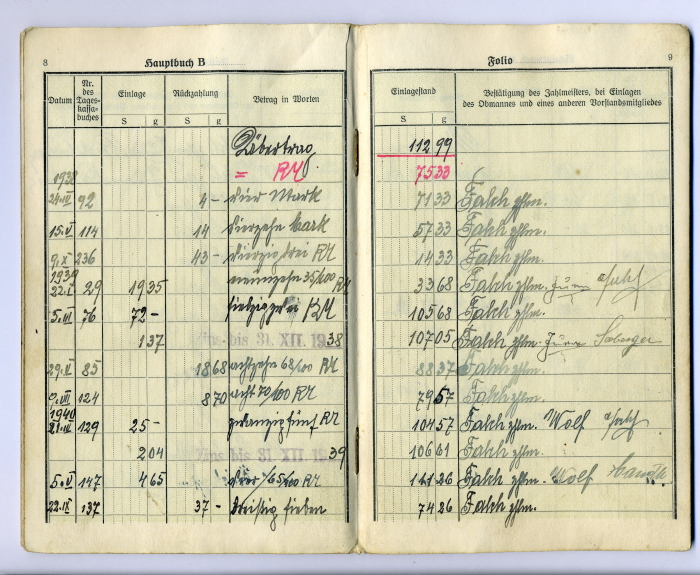 8 Hauptbuch B
Datum Nr. des Tages- kassa- buches Einlage Rückzahlung Betrag in Worten
S g S g
Übertrag
= RM
1938
24.IV 92 4 - vier Mark
15.V 114 14 vierzehn Mark
9.X 236 43 - vierzig drei RM
1939
22.I 29 19 35 neunzehn 35/100 RM
5.III 76 72 - siebzig zwei RM
1 37 Zins bis 31. XII. 1938
29.V 85 18 68 achtzehn 68/100 RM
9.VII 124 8 70 acht 70/100 RM
1940
21.IV 129 25 - zwanzig fünf RM
2 04 Zins bis 31. XII. 1939
5.V 147 4 65 vier 65/100 RM
22.IX 137 37 - dreißig sieben
Folio 9
Einlagestand Bestätigung des Zahlmeisters, bei Einlagen
des Obmannes und eines anderen Vorstandsmitgliedes
S g
112 99
75 33
71 33 Falch zhlm.
57 33 Falch zhlm.
14 33 Falch zhlm.
33 68 Falch zhlm.
105 68 Falch zhlm.
107 05 Falch zhlm.
88 37 Falch zhlm.
79 57 Falch zhlm.
104 57 Falch zhlm. Wolf
106 61 Falch zhlm.
111 26 Falch zhlm. Wolf
74 26 Falch zhlm.